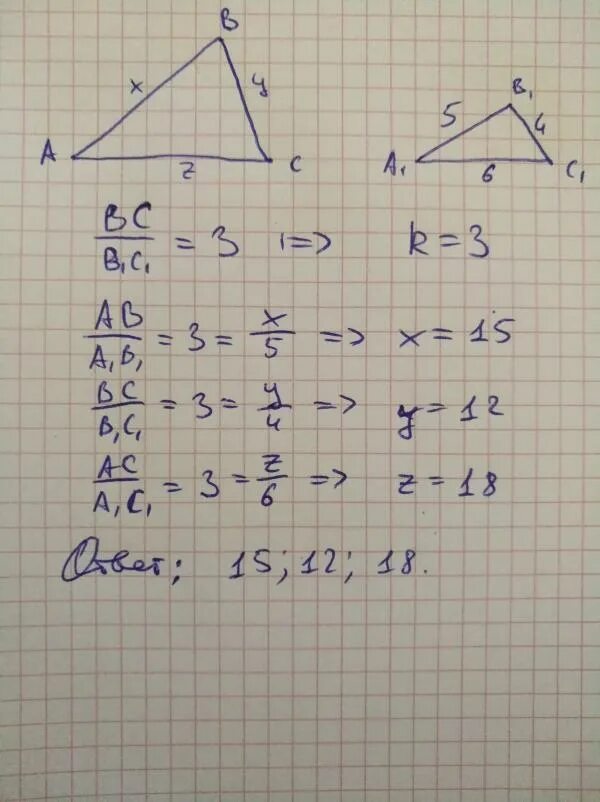 B
x y
A z C
B₁
5 4
A₁ 6 C₁
BC/B₁C₁ = 3 => k = 3
AB/A₁B₁ = 3 = x/5 => x = 15
BC/B₁C₁ = 3 = y/4 => y = 12
AC/A₁C₁ = 3 = z/6 => z = 18
Ответ: 15; 12; 18.